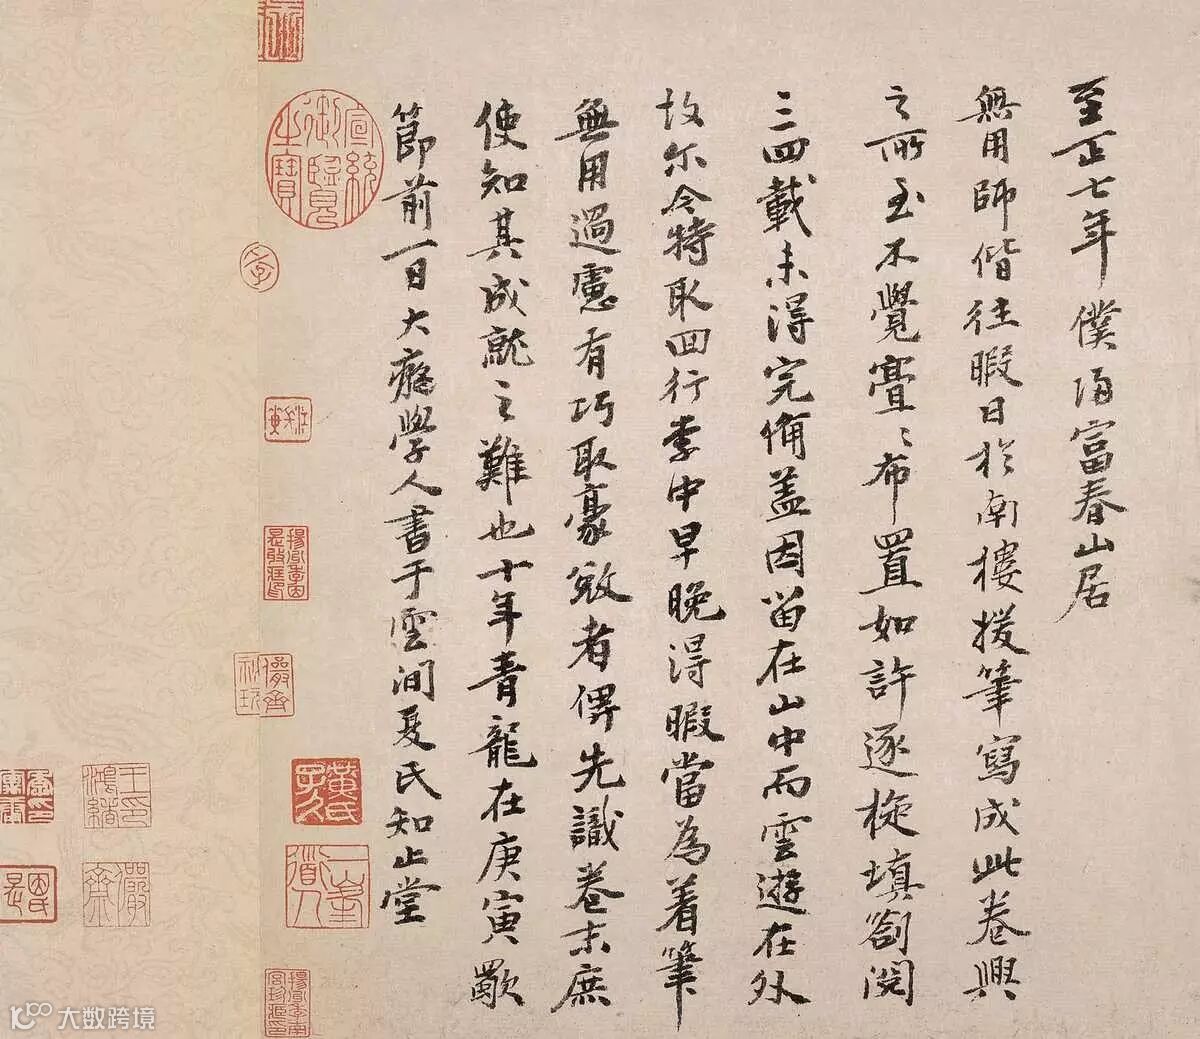 至正七年僕歸富春山居
無用師偕往暇日於南樓援筆寫成此卷興
之所至不覺亹〻布置如許逐旋填劄閱
三四載未得完備盖因留在山中而雲遊在外
故尔今特取回行李中早晚得暇當為着筆
無用過慮有巧取豪敚者俾先識卷末庶
使知其成就之難也十年青龍在庚寅歜
節前一日大癡學人書于雲間夏氏知止堂
宣統御覽之寶
黃氏子久
一峯道人
儼齋秘玩
王鴻緒印
儼齋
大数跨境